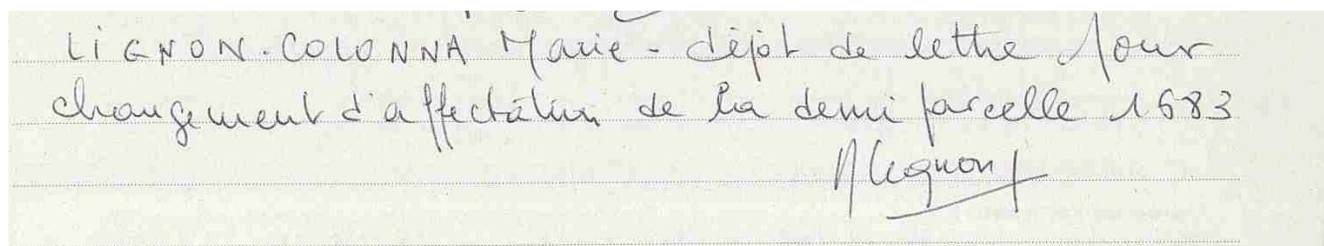 LIGNON-COLONNA Marie - dépôt de lettre pour
changement d'affectation de la demi parcelle 1683
MLignon